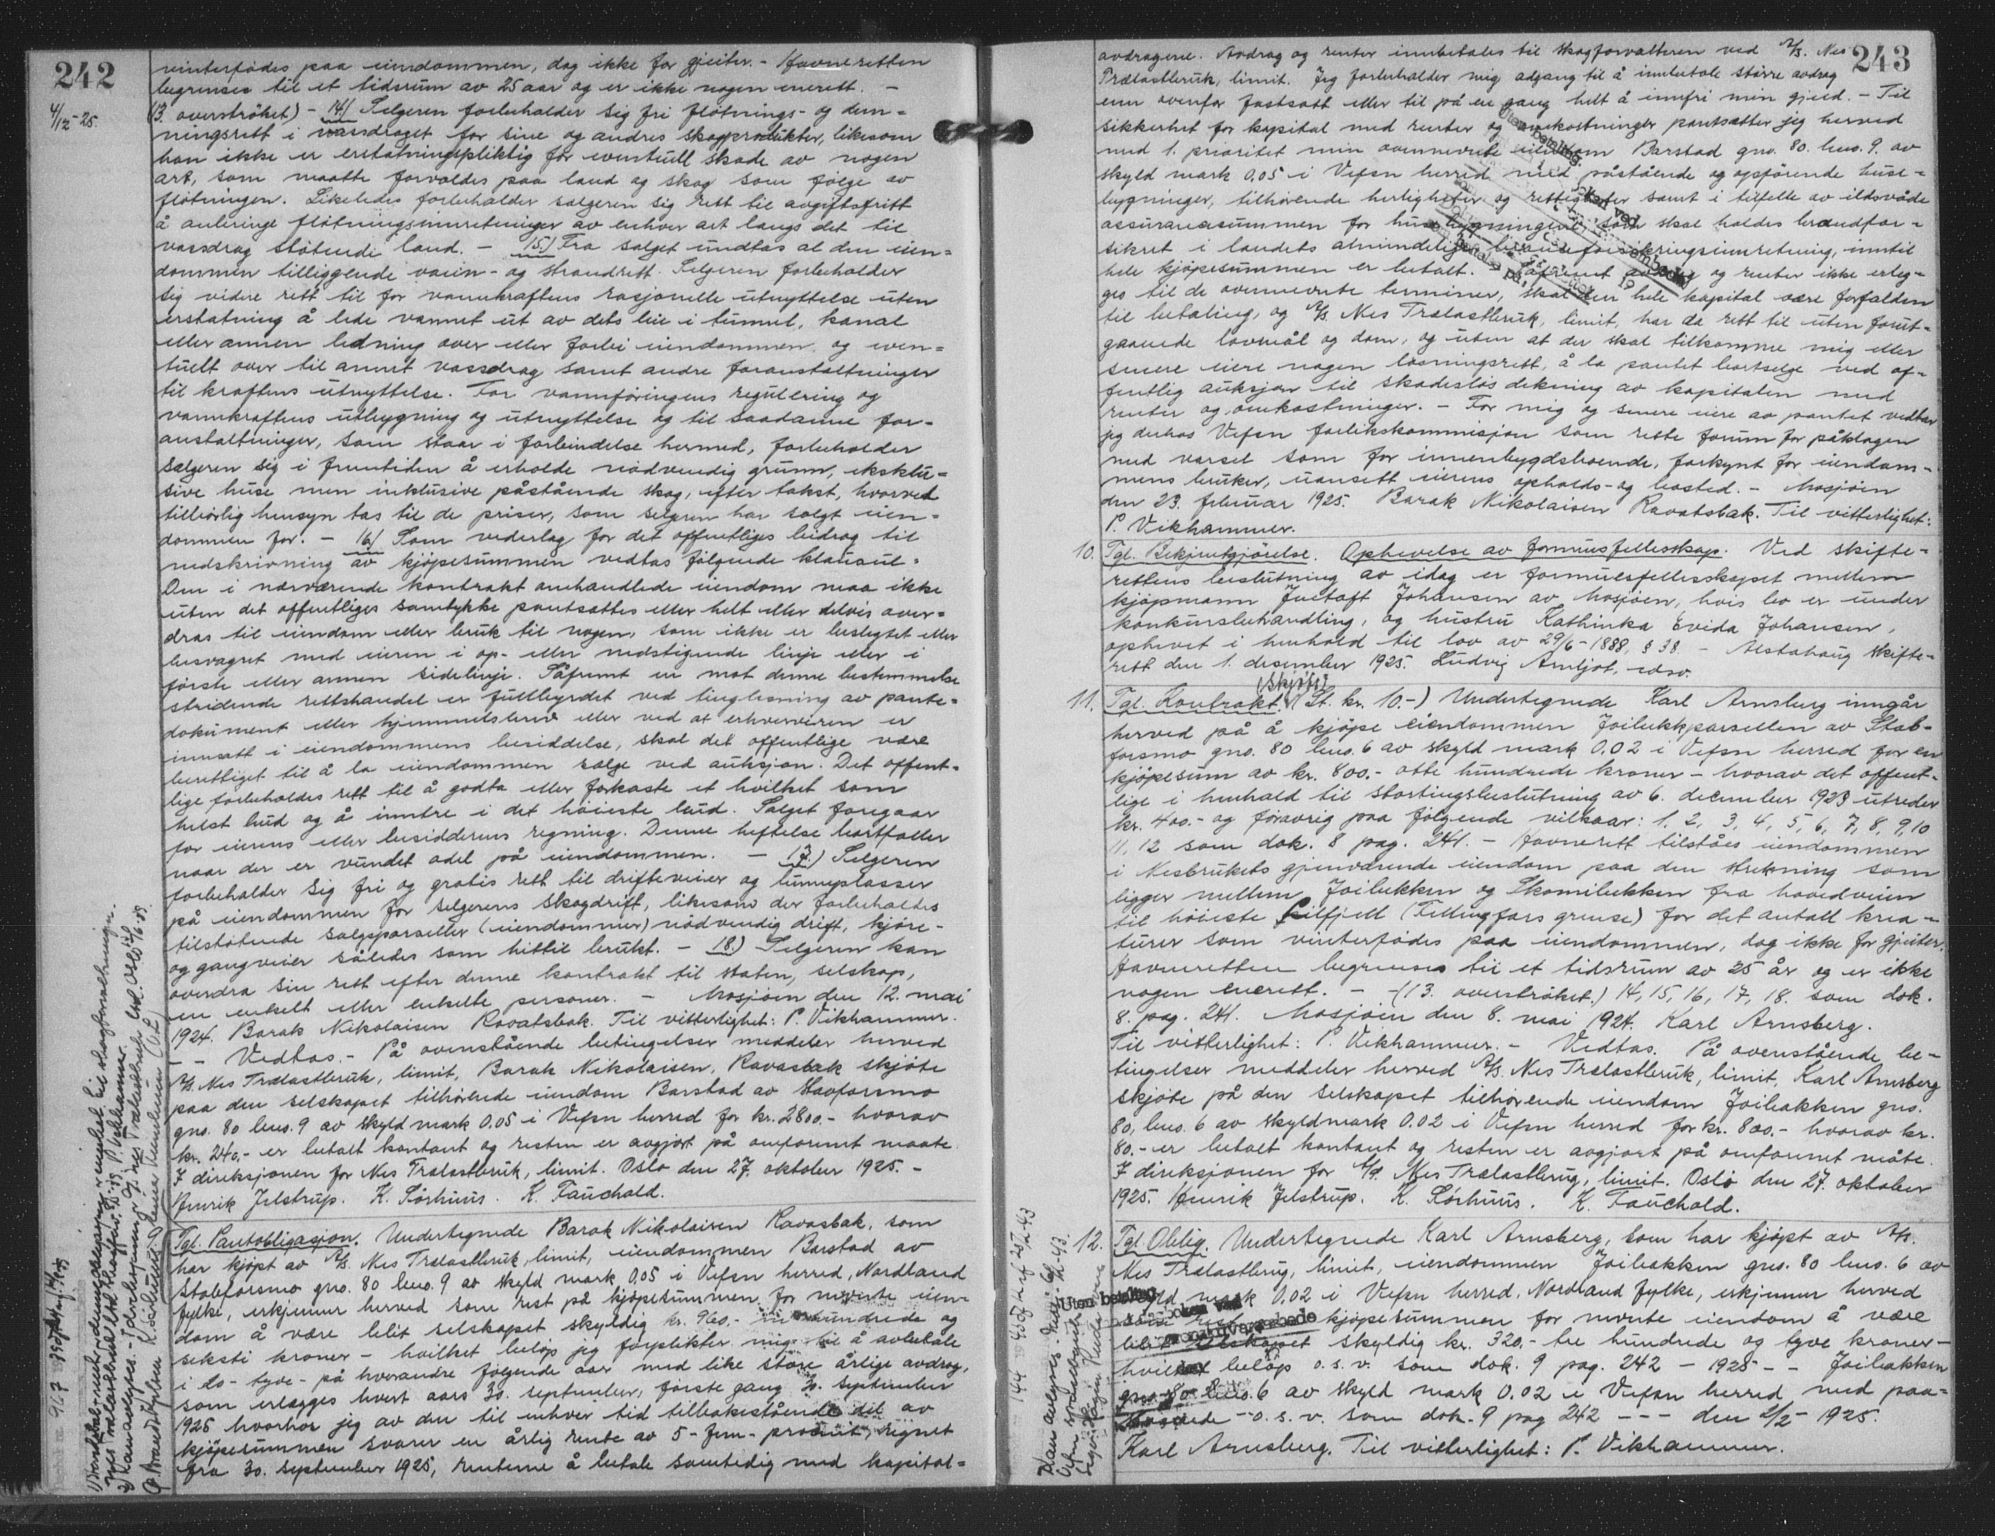 242
4/12-25
vinterfödes paa eiendommen, dog ikke for gjeiter. - Havneretten
begrenses til et tidsrum av 25 aar og er ikke nogen enerett. -
(13. overströket) - 14) Selgeren forbeholder sig fri flötnings- og dem=
ningsrett i vassdraget for sine og andres skogprodukter, likesom
han ikke er erstatningspliktig for eventuell skade av nogen
art, som maatte forvoldes paa land og skog som fölge av
flötningen. Likeledes forbeholder sælgeren sig rett til avgiftsfritt
å anbringe flötningsinnretninger av enhver art langs det til
vassdrag stötende land. - 15) Fra salget undtas al den eien=
dommen tilliggende vann- og strandrett. Selgeren forbeholder
sig videre rett til for vannkraftens rasjonelle utnyttelse uten
erstatning å lede vannet ut av dets leie i tunnel, kanal
eller annen ledning over eller forbi eiendommen, og even=
tuelt over til annet vassdrag samt andre foranstaltninger
til kraftens utnyttelse. For vannföringens regulering og
vannkraftens utbygning og utnyttelse og til saadanne for-
anstaltninger, som staar i forbindelse hermed, forbeholder
sælgeren sig i fremtiden å erholde nödvendig grunn, eksklu=
sive huse men inklusive påstående skog, efter takst, hvorved
tilbörlig hensyn tas til de priser, som selgeren har solgt eien=
dommen for. - 16) Som vederlag for det offentliges bidrag til
nedskrivning av kjöpesummen vedtas fölgende klausul:
Den i nærværende kontrakt omhandlede eiendom maa ikke
uten det offentliges samtykke pantsættes eller helt eller delvis over=
dras til eiendom eller bruk til nogen, som ikke er beslegtet eller
besvogret med eieren i op- eller nedstigende linje eller i
förste eller annen sidelinje. Såfremt en mot denne bestemmelse
stridende rettshandel er fullbyrdet ved tinglesning av pante=
dokument eller hjemmelsbrev eller ved at erhververen er
innsatt i eiendommens besiddelse, skal det offentlige være
berettiget til å la eiendommen sælge ved auksjon. Det offent=
lige forbeholdes rett til å godta eller forkaste et hvilket som
helst bud og å inntre i det höieste bud. Salget foregaar
for eierens eller besidderens regning. Denne heftelse bortfaller
naar der er vundet odel på eiendommen. - 17) Selgeren
forbeholder sig fri og gratis rett til drifteveier og tunneplasser
på eiendommen for selgerens skogdrift, likesom der forbeholdes
tilstötende salgsparseller (eiendommer) nödvendig drift, kjöre-
og gangveier således som hittil brukt. - 18) Selgeren kan
overdra sin rett efter denne kontrakt til staten, selskap,
en enkelt eller enkelte personer. - Mosjöen den 12. mai
1924. Barak Nikolaisen Ravatsbak. Til vitterlighet: P. Vikhammer.
- - Vedtas. - På ovenstående betingelser meddeler herved
A/S. Nes Trælastbruk, limit, Barak Nikolaisen, Ravasbak skjöte
paa den selskapet tilhörende eiendom Barstad av Stavforsmo
gno. 80 bno. 9 av skyld mark 0.05 i Vefsn herred for kr. 2800.- hvorav
kr. 240.- er betalt kontant og resten er avgjort på omforenet maate.
I direksjonen for Nes Trælastbruk, limit. Oslo den 27. oktober 1925. -
Henrik Jelstrup. K. Sörhuus. K. Fauchald.
Tgl. Pantobligasjon. Undertegnede Barak Nikolaisen Ravasbak, som
har kjöpt av A/S. Nes Trælastbruk, limit, eiendommen Barstad av
Stabforsmo gno. 80 bno. 9 av skyld mark 0,05 i Vefsn herred, Nordland
fylke, erkjenner herved som rest på kjöpesummen for nevnte eien=
dom å være blit selskapet skyldig kr. 960.- ni hundrede og
seksti kroner - hvilket belöp jeg forplikter mig til å avbetale
i 20 - tyve - på hverandre fölgende aar med like store årlige avdrag,
som erlegges hvert aars 30. september, förste gang 30. september
1926 hvorhos jeg av den til enhver tid tilbakestående del av
kjöpesummen svarer en årlig rente av 5 - fem - procent, regnet
fra 30. september 1925, renterne å betale samtidig med kapital=
243
avdragene. Avdrag og renter innbetales til skogforvalteren ved A/S. Nes
Trælastbruk, limit. Jeg forbeholder mig adgang til å innbetale större avdrag
enn ovenfor fastsatt eller til på en gang helt å innfri min gjeld. - Til
sikkerhet for kapital med renter og omkostninger pantsætter jeg herved
med 1. prioritet min ovennevnte eiendom Barstad gno. 80. bno. 9. av
skyld mark 0.05 i Vefsn herred med påstående og opförende hus=
bygninger, tilhörende herligheter og rettigheter samt i tilfelle av ildsvåde
assuransesummen for husbygningene, som skal holdes brandfor=
sikret i landets almindelige brandforsikringsinnretning, inntil
hele kjöpesummen er betalt. - Såfremt avdrag og renter ikke erleg=
ges til de ovennevnte terminer, skal den hele kapital være forfalden
til betaling, og A/S. Nes Trælastbruk, limit, har da rett til uten forut=
gaaende lovmål og dom, og uten at der skal tilkomme mig eller
senere eiere nogen lösningsrett, å la pantet bortselge ved of=
fentlig auksjon til skadeslös dekning av kapitalen med
renter og omkostninger. - For mig og senere eiere av pantet vedtar
jeg derhos Vefsn forlikskommisjon som rette forum for påklagen
med varsel som for innenbygdsboende, forkynt for eiendom=
mens bruker, uansett eierens opholds- og bosted. - Mosjöen
den 23. februar 1925. Barak Nikolaisen Ravatsbak. Til vitterlighet:
P. Vikhammer.
10. Tgl. Bekjentgjörelse. Ophevelse av formuesfellesskap. Ved skifte=
rettens beslutning av idag er formuesfellesskapet mellem
kjöpmann Justoft Johansen av Mosjöen, hvis bo er under
konkursbehandling, og hustru Kathinka Evida Johansen,
ophevet i henhold til lov av 29/6-1888, § 38. - Alstahaug skifte=
rett den 1. desember 1925. Ludvig
(Skjöte)
11. Tgl. Kontrakt. (St. kr. 10.-) Undertegnede Karl Arnsberg inngår
herved på å kjöpe eiendommen Joibakkparsellen av Stab=
forsmo gno. 80 bno. 6 av skyld mark 0,02 i Vefsn herred for en
kjöpesum av kr. 800.- otte hundrede kroner - hvorav det offent=
lige i henhold til stortingsbeslutning av 6. december 1923 utreder
kr. 400.- og forövrig paa fölgende vilkaar: 1, 2, 3, 4, 5, 6, 7, 8, 9, 10
11, 12 som dok. 8 pag. 241. - Havnerett tilståes eiendommen
i Nesbrukets gjenværende eiendom paa den strekning som
ligger mellem Joibakken og Skomibakken fra hovedveien
til höieste filfjell (Fellingfors grense) for det antall krea=
turer som vinterfödes paa eiendommen, dog ikke for gjeiter.
Havneretten begrenses til et tidsrum av 25 år og er ikke
nogen enerett. - -(13. overströket.) 14, 15, 16, 17, 18. som dok.
8. pag. 241. Mosjöen den 8. mai 1924. Karl Arnsberg.
Til vitterlighet: P. Vikhammer. - Vedtas. På ovenstående be=
tingelser meddeler herved A/S. Nes Trælastbruk, limit, Karl Arnsberg
skjöte på den selskapet tilhörende eiendom Joibakken gno.
80, bno. 6 av skyldmark 0.02 i Vefsn herred for kr. 800.- hvorav kr.
80.- er betalt kontant og resten er avgjort på omforenet måte.
I direksjonen for A/S. Nes Trælastbrug, limit. Oslo den 27. oktober
1925. Henrik Jelstrup. K. Sörhuus. K. Fauchald.
12. Tgl. Oblig. Undertegnede Karl Arnsberg, som har kjöpt av A/S.
Nes Trælastbrug, limit, eiendommen Joibakken gno. 80 bno. 6 av
skyld mark 0.02 i Vefsn herred, Nordland fylke, erkjenner herved
som rest på kjöpesummen for nevnte eiendom å være
blit selskapet skyldig kr. 320.- tre hundrede og tyve kroner -
hvilket belöp o.s.v. som dok. 9 pag. 242 - 1925 - - Joibakken
gno. 80 bno. 6 av skyld mark 0.02 i Vefsn herred med paa=
staaende - o.s.v. som dok. 9 pag 242 - - - den 2/2 - 1925.
Karl Arnsberg. Til vitterlighet: P. Vikhammer.